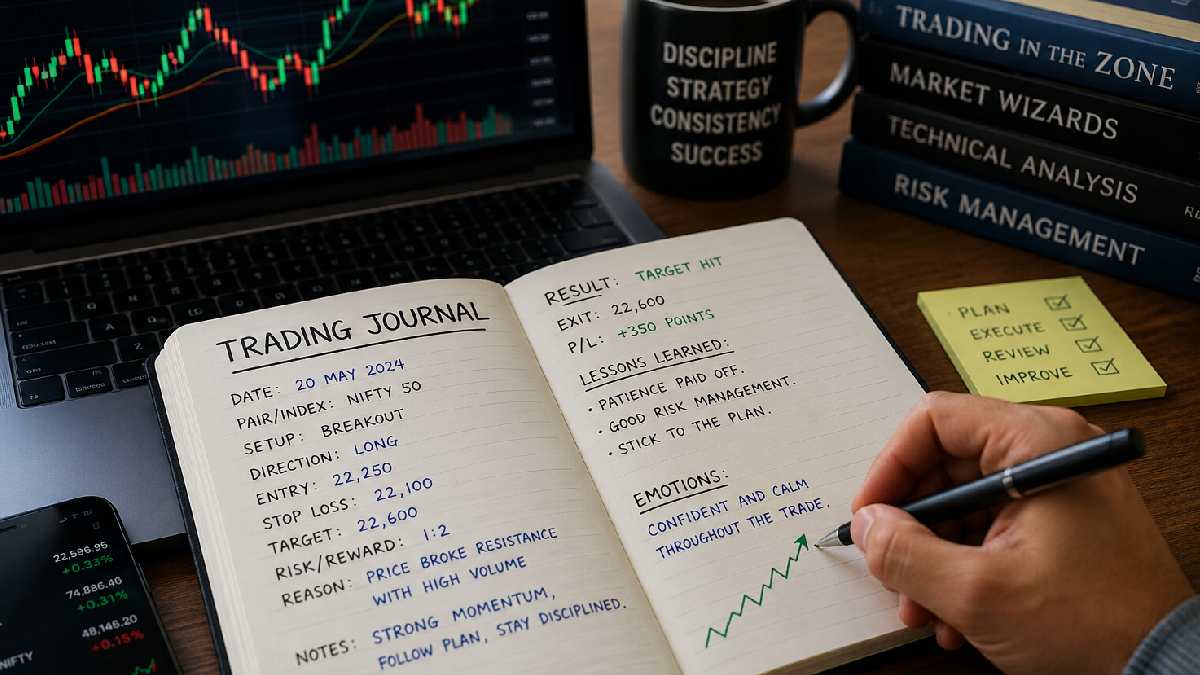 DISCIPLINE
STRATEGY
CONSISTENCY
SUCCESS
TRADING IN THE ZONE
MARKET WIZARDS
TECHNICAL ANALYSIS
RISK MANAGEMENT
TRADING JOURNAL
DATE: 20 MAY 2024
PAIR/INDEX: NIFTY 50
SETUP: BREAKOUT
DIRECTION: LONG
ENTRY: 22,250
STOP LOSS: 22,100
TARGET: 22,600
RISK/REWARD: 1:2
REASON: PRICE BROKE RESISTANCE
WITH HIGH VOLUME
NOTES: STRONG MOMENTUM,
FOLLOW PLAN, STAY DISCIPLINED.
RESULT: TARGET HIT
EXIT: 22,600
P/L: +350 POINTS
LESSONS LEARNED:
• PATIENCE PAID OFF.
• GOOD RISK MANAGEMENT.
• STICK TO THE PLAN.
EMOTIONS:
CONFIDENT AND CALM
THROUGHOUT THE TRADE.
PLAN ☑
EXECUTE ☑
REVIEW ☑
IMPROVE ☑
+0.33%
+0.31%
+0.15%
NIFTY